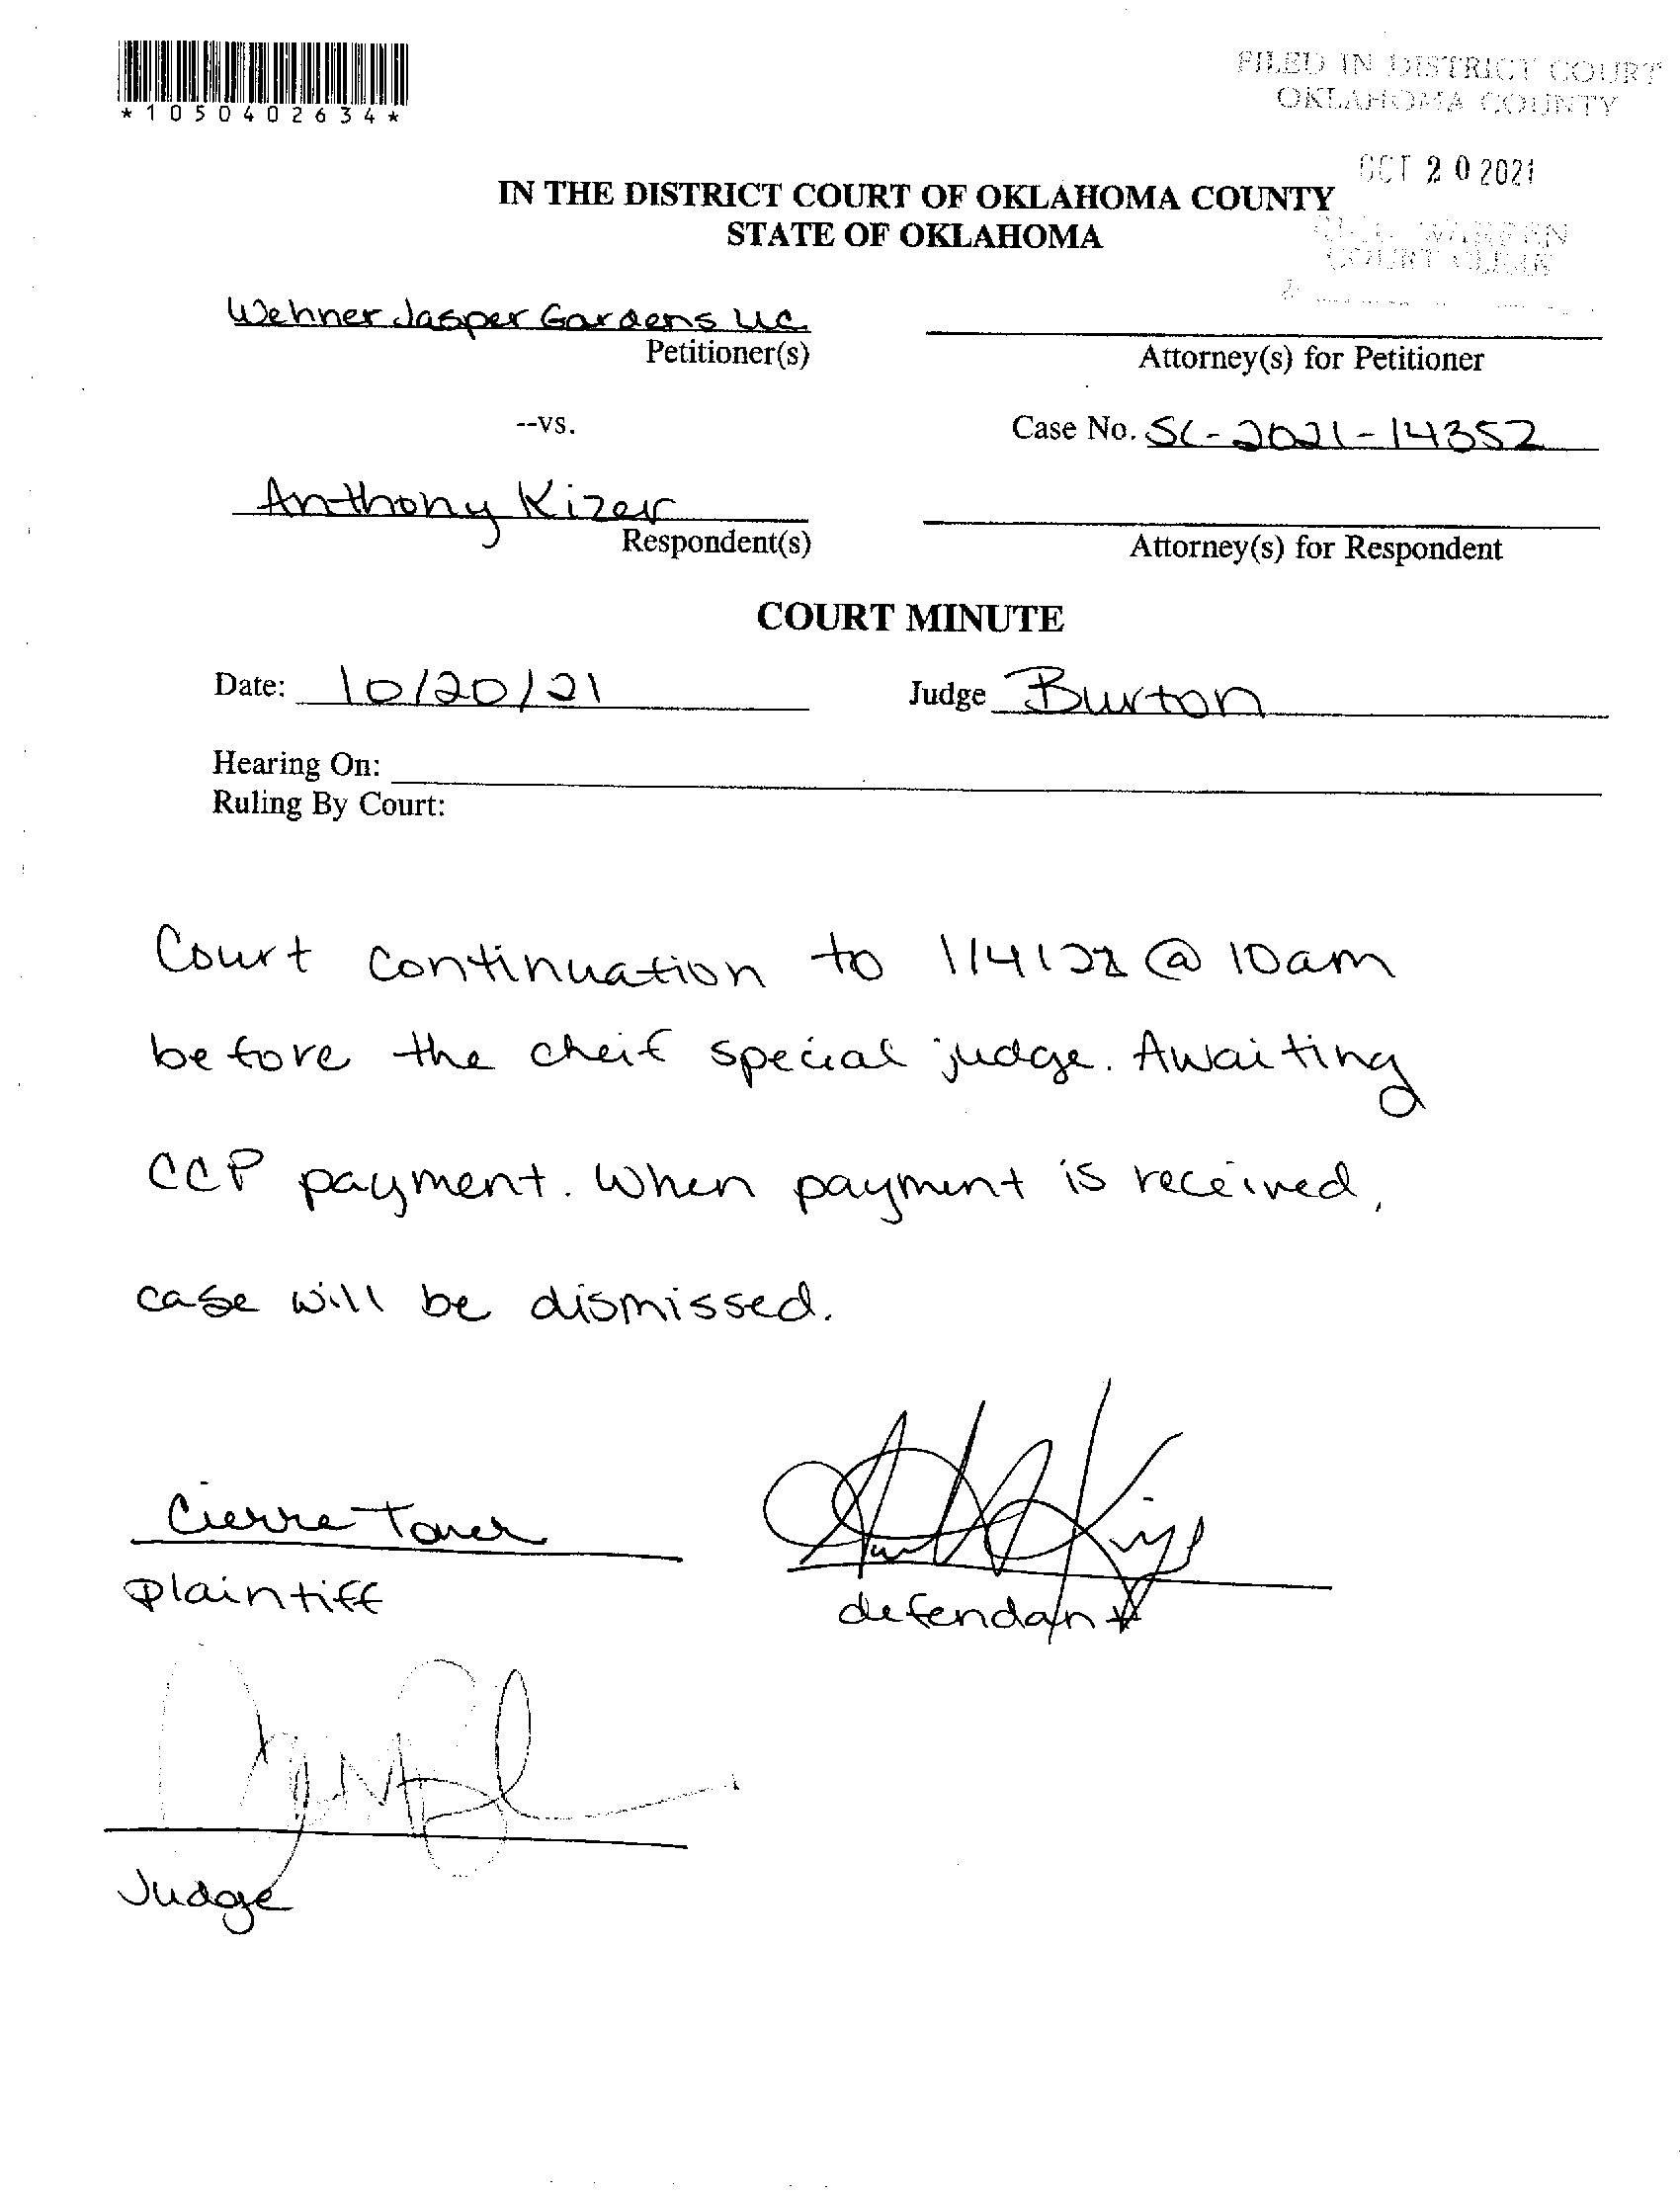 *1050402634*
FILED IN DISTRICT COURT
OKLAHOMA COUNTY
OCT 20 2021
IN THE DISTRICT COURT OF OKLAHOMA COUNTY
STATE OF OKLAHOMA
WARREN
COURT CLERK
Wehner Jasper Gardens LLC
Petitioner(s)
Attorney(s) for Petitioner
--vs.
Case No. SC-2021-14352
Anthony Kizer
Respondent(s)
Attorney(s) for Respondent
COURT MINUTE
Date: 10/20/21
Judge Burton
Hearing On:
Ruling By Court:
Court continuation to 1/4/22 @ 10am
before the cheif special judge. Awaiting
CCP payment. When payment is received,
case will be dismissed.
Cierre
plaintiff
defendant
Judge